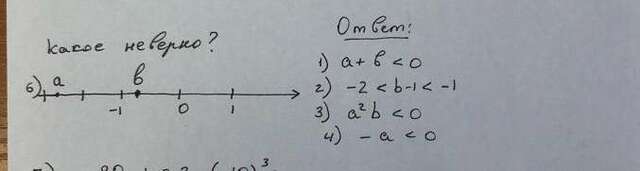 Какое неверно?
Ответ:
1) a + b < 0
2) -2 < b-1 < -1
3) a² b < 0
4) - a < 0
6) a b
-1 0 1